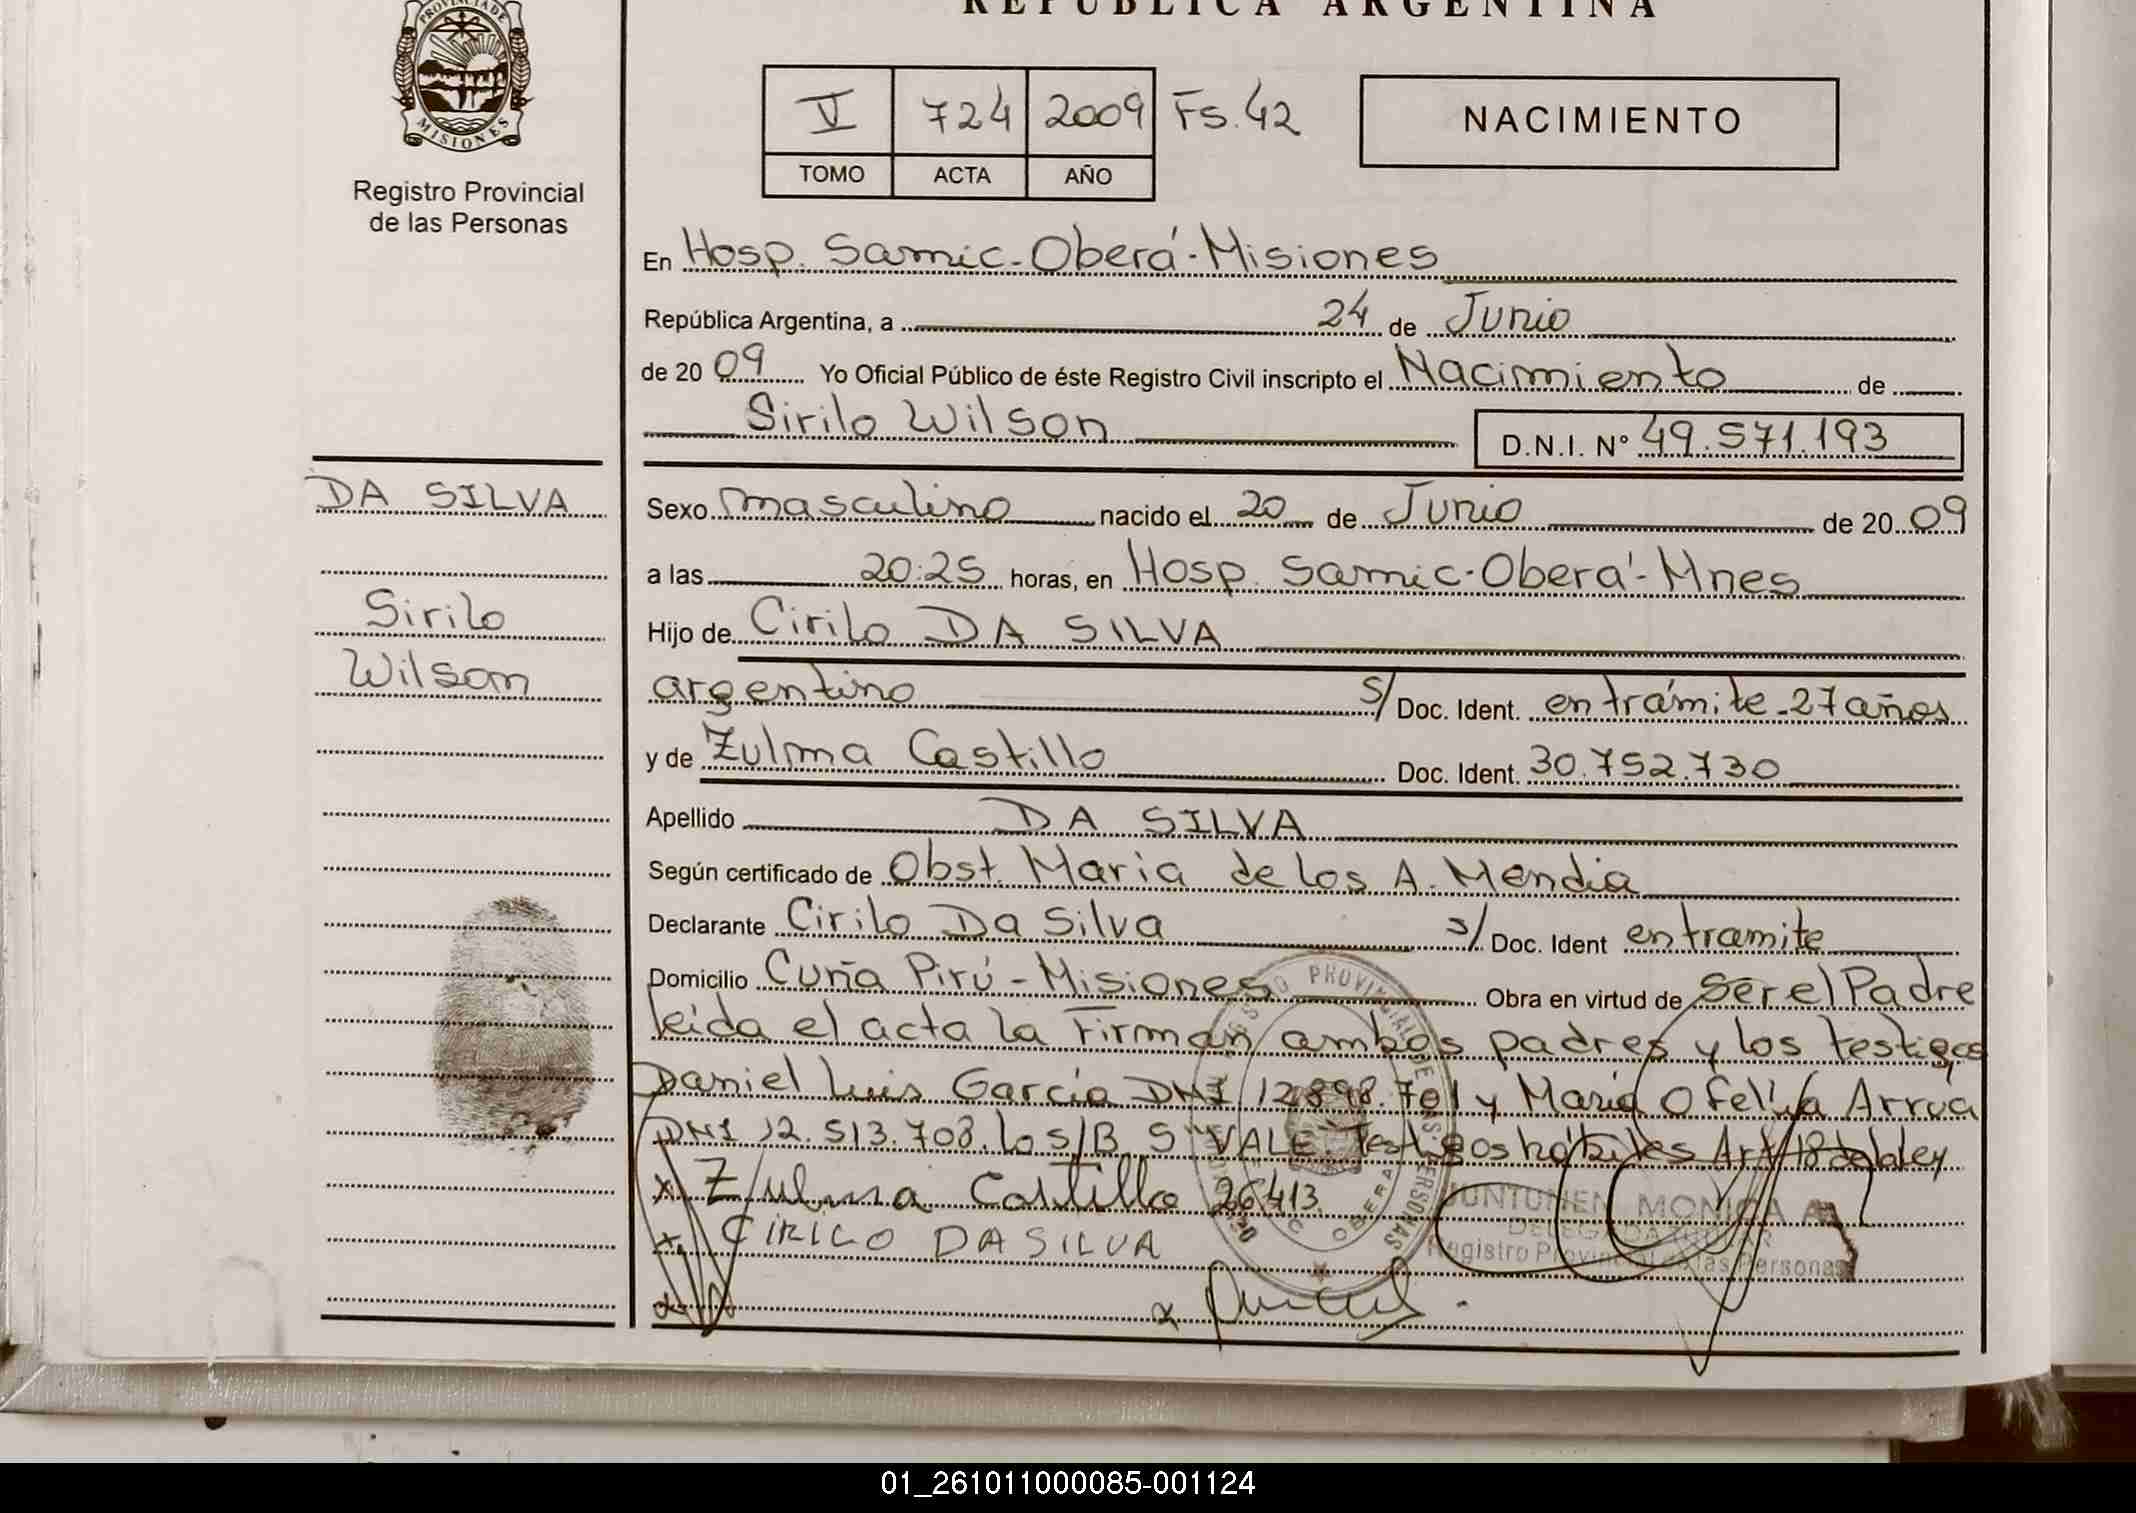 REPUBLICA ARGENTINA
PROVINCIA DE
MISIONES
Registro Provincial
de las Personas
V 724 2009 Fs. 42
TOMO ACTA AÑO
NACIMIENTO
En Hosp. Samic - Oberá - Misiones
República Argentina, a 24 de Junio
de 20 09 Yo Oficial Público de éste Registro Civil inscripto el Nacimiento de
Sirilo Wilson D.N.I. Nº 49.571.193
DA SILVA
Sirilo
Wilson
Sexo masculino nacido el 20 de Junio de 20 09
a las 20:25 horas, en Hosp. Samic - Oberá - Mnes
Hijo de Cirilo DA SILVA
argentino S/ Doc. Ident. en trámite - 27 años
y de Zulma Castillo Doc. Ident. 30.752.730
Apellido DA SILVA
Según certificado de Obst. Maria de los A. Mendia
Declarante Cirilo Da Silva s/ Doc. Ident en tramite
Domicilio Cuña Pirú - Misiones Obra en virtud de Ser el Padre
leída el acta la Firman ambos padres y los testigos
Daniel Luis García DNI 12.898.701 y María Ofelia Arrua
DNI 12.513.708. lo s/B S "VALE" Testigos hábiles Art 18 de la ley
x Zulma Castillo 26.413.
x CIRILO DA SILVA
JUNTUNEN MONICA A.
DELEGADA TITULAR
Registro Provincial de las Personas
01_261011000085-001124